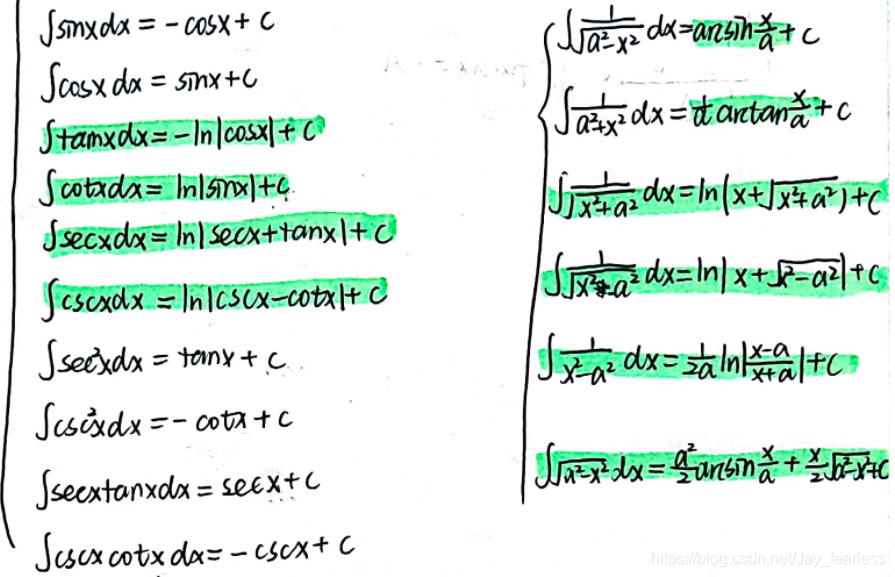 ∫sinxdx = -cosx + C
∫cosxdx = sinx + C
∫tanxdx = -ln|cosx| + C
∫cotxdx = ln|sinx| + C
∫secxdx = ln|secx+tanx| + C
∫cscxdx = ln|cscx-cotx| + C
∫sec²xdx = tanx + C
∫csc²xdx = -cotx + C
∫secxtanxdx = secx + C
∫cscxcotxdx = -cscx + C
∫1/√(a²-x²) dx = arcsin x/a + C
∫1/(a²+x²) dx = 1/a arctan x/a + C
∫1/√(x²+a²) dx = ln(x+√(x²+a²)) + C
∫1/√(x²-a²) dx = ln|x+√(x²-a²)| + C
∫1/(x²-a²) dx = 1/2a ln|(x-a)/(x+a)| + C
∫√(a²-x²) dx = a²/2 arcsin x/a + x/2 √(a²-x²) + C
https://blog.csdn.net/Jay_fearless